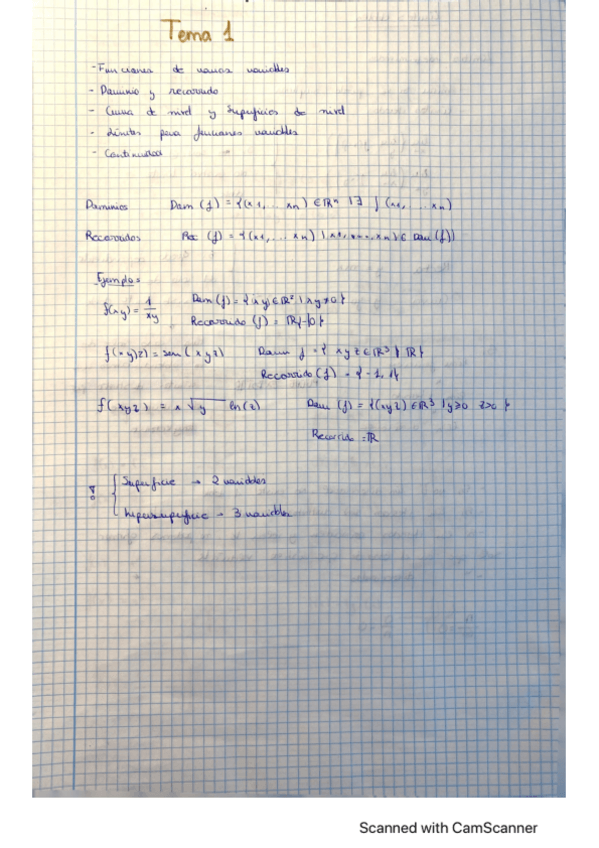 Tema 1
- Funciones de varias variables
- Dominio y recorrido
- Curva de nivel y superficies de nivel
- Límites para funciones variables
- Continuidad
Dominios Dom (f) = {(x1, ... xn) ∈ ℝⁿ | ∃ f (x1, ... xn)
Recorridos Rec (f) = {(x1, ... xn) | x1, xn ∈ Dom (f)}
Ejemplos
f(xy) = 1/xy Dom (f) = {xy) ∈ ℝ² | xy ≠ 0}
Recorrido (f) = ℝ - {0}
f(x y z) = sen (x y z) Dom f = { x y z ∈ ℝ³ | ℝ}
Recorrido (f) = {-1, 1}
f(xyz) = x √y ln(z) Dom (f) = {(xyz) ∈ ℝ³ | y ≥ 0 z>0 }
Recorrido = ℝ
Superficie → 2 variables
hipersuperficie → 3 variables
Scanned with CamScanner